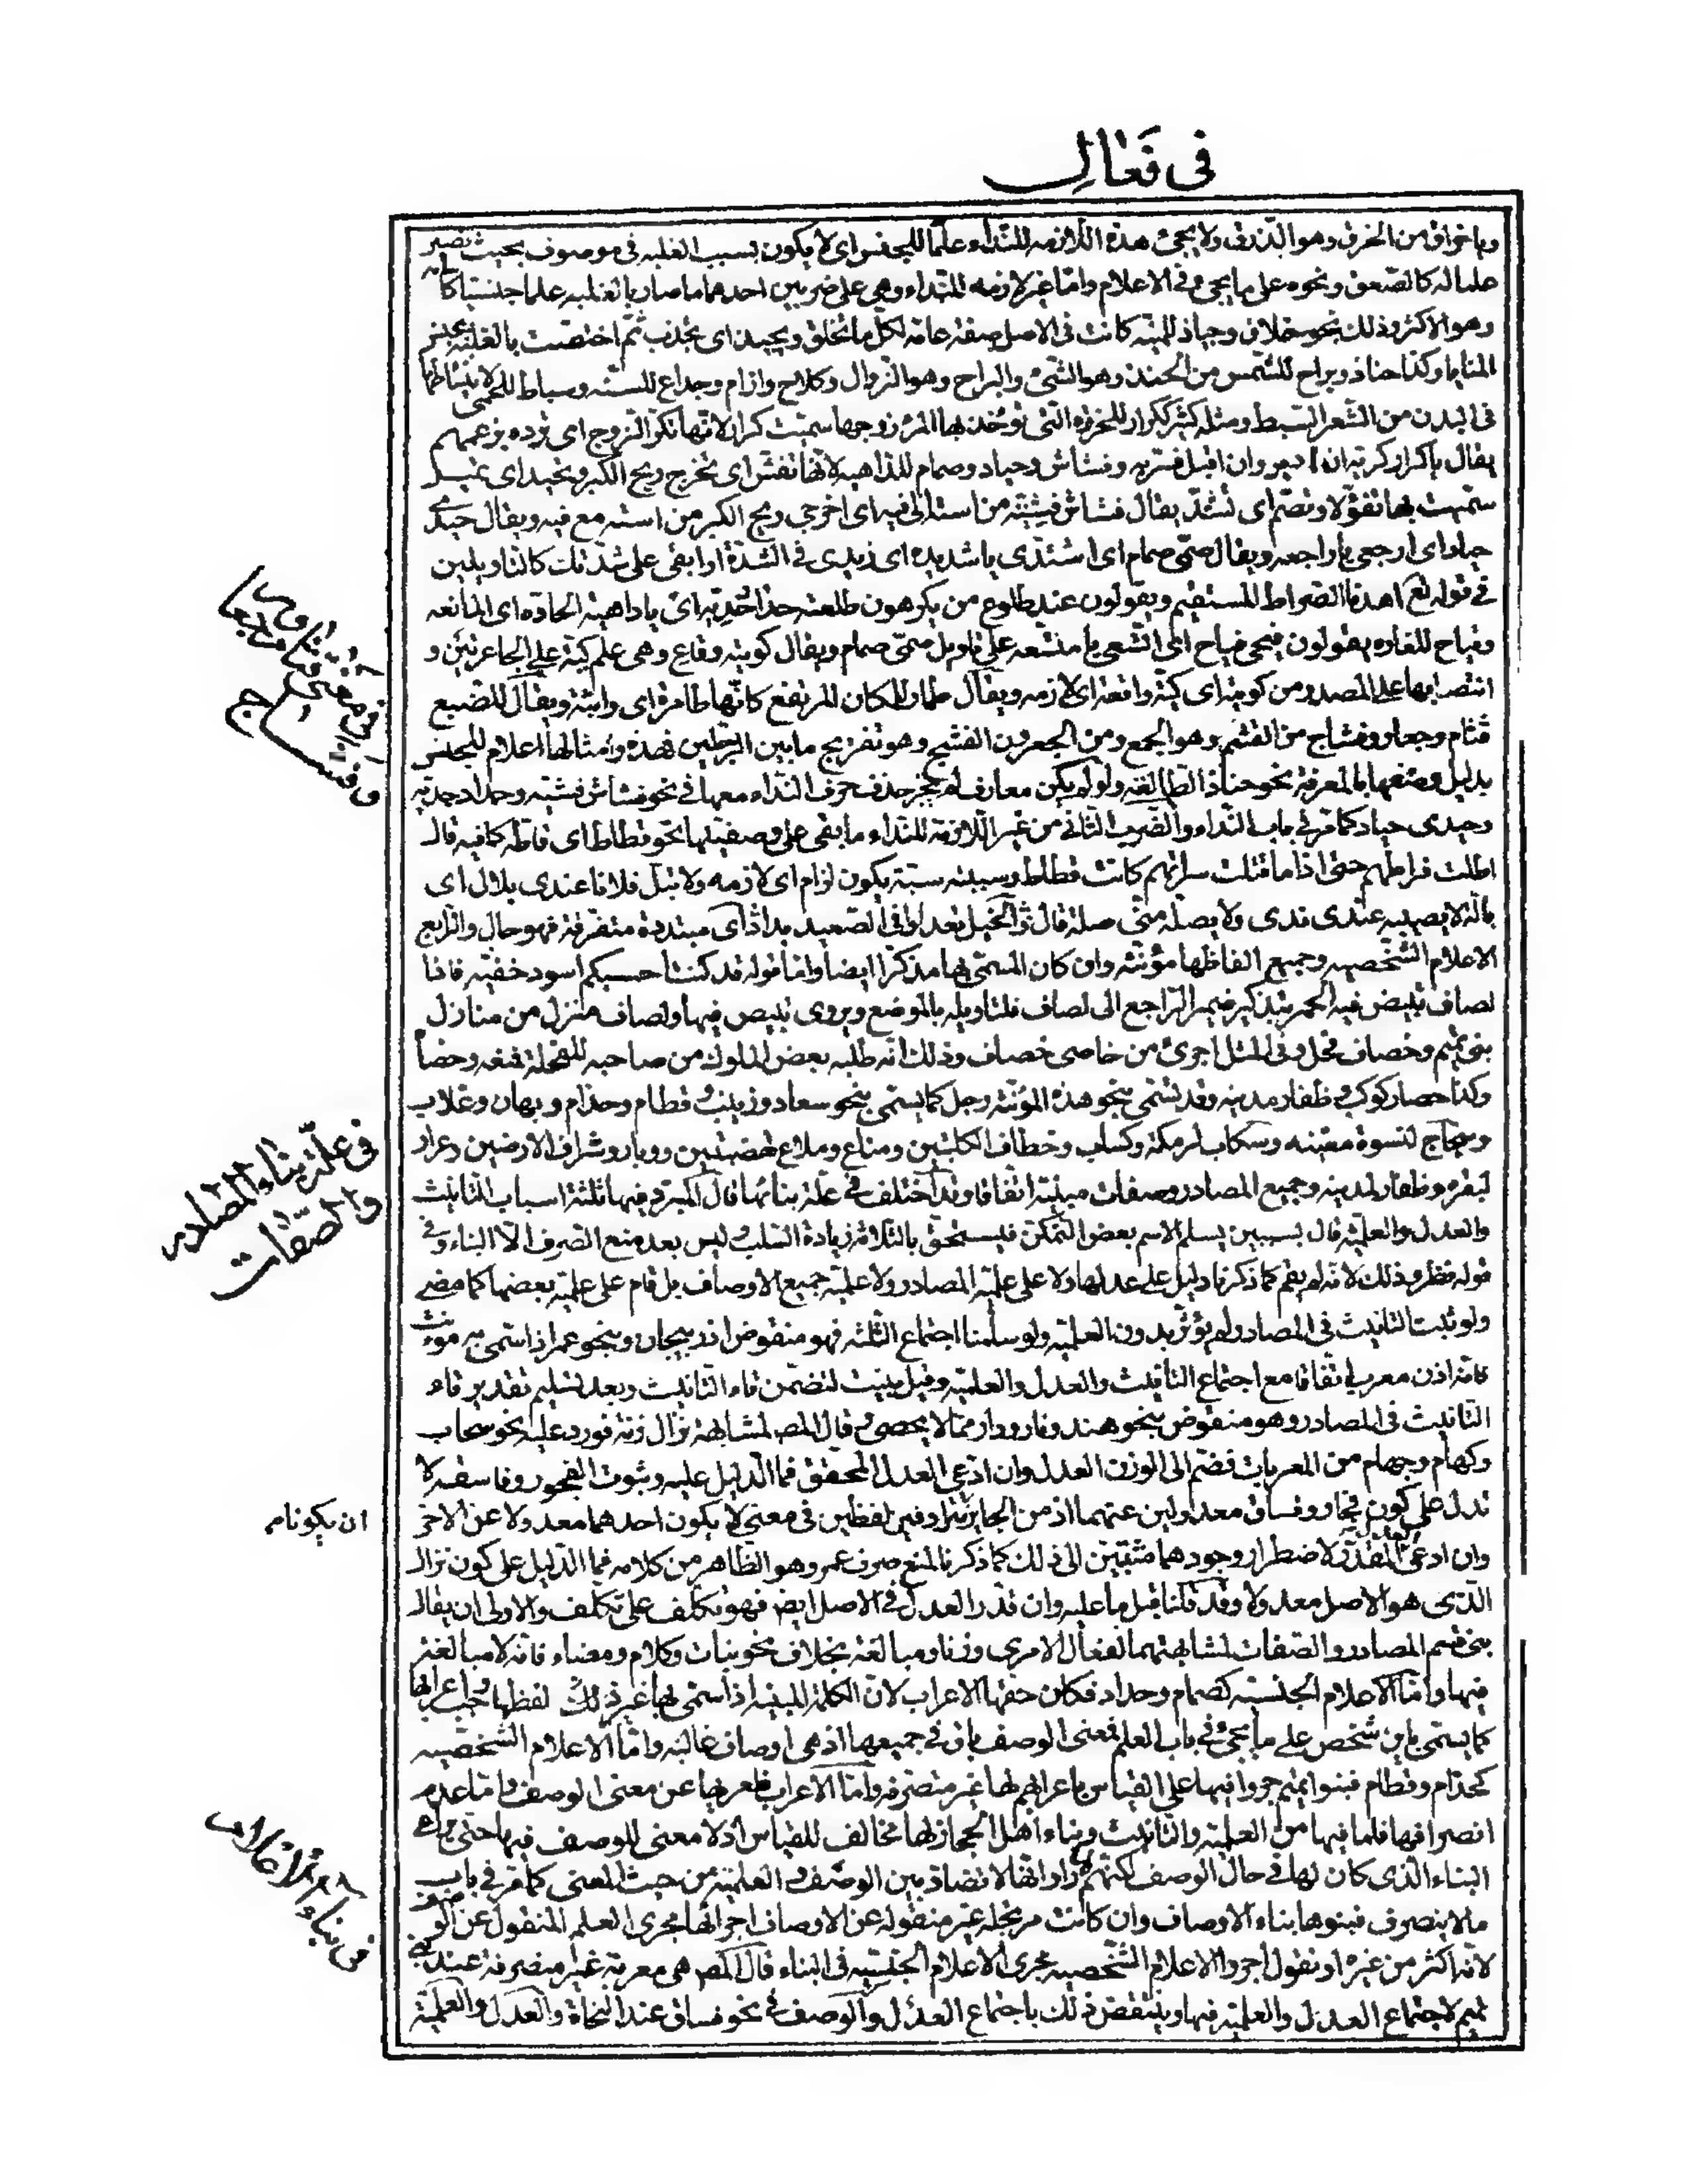 فى فَعَالِ
وياخزاق من الخزق وهو الذرق ولا يجئ هذه اللازمه للنداء علما للجنس اى لا يكون بسبب الغلبه فى موصوف بحيث تصير
علما له كالصعق ونحوه على ما يجئ فى الاعلام واما غير لازمه للنداء وهى على ضربين احدهما ما صار بالغلبه علما جنسيا كاسامه
وهو الاكثر وذلك نحو حلاق وجباذ للمنيه كانت فى الاصل صفة عامة لكل ما تحلق وتجبذ اى تجذب ثم اختصت بالغلبة بجنس
المنايا وكذا حناذ وبراح للشمس من الحنذ وهو الشئ والبراح وهو الزوال وكلاح وازام وجداع للسنه وسباط للحمى لانبساطها
فى البدن من الشعر السبط ومثله كثير ككرار للخرزه التى تؤخذ بها المرأة زوجها سميت كرار لانها تكر الزوج اى ترده بزعمهم
يقال ياكرار كريه ان ادبر وان اقبل فسريه وفشاش وحياد وصمام للداهيه لانها تفش اى تخرج ريح الكبر وتحيد اى تميل
سميت بها تفؤلا وتصم اى تشتد يقال فشاش فشيه من استه الى فيه اى اخرجى ريح الكبر من استه مع فيه ويقال حيدى
حياد اى ارجعى يا راجعه ويقال صمى صمام اى اشتدى يا شديده اى زيدى فى الشدة او ابقى على شدتك كالتاويلين
فى قوله تع اهدنا الصراط المستقيم ويقولون عند طلوع من يكرهون طلعته حداد حديه اى يا داهية الحادة اى المانعه
وفياح للغاره يقولون فيحى فياح اى اتسعى يا متسعه على تاويل صمى صمام ويقال كويته وقاع وهى علم كية على الجاعرتين و
انتصابها على المصدر من كويته اى كية واقعة اى لازمه ويقال طمار للمكان المرتفع كانها طامرة اى واثبة ويقال للضبع
قثام وجعار وفشاج من القثم وهو الجمع ومن الجعر ومن الفشج وهو تفريج ما بين الرجلين فهذه وامثالها اعلام للجنس
بدليل وصفها بالمعرفة نحو حناذ الطالعة ولو لم يكن معارف لم يجز حذف حرف النداء معها فى نحو فشاش فشيه وحداد حديه
وحيدى حياد كما مر فى باب النداء والضرب الثانى من غير اللازمة للنداء ما بقى على وصفيتها نحو قطاط اى قاطه كافيه قال
اطلت فراطهم حتى اذا ما قتلت سراتهم كانت قطاط وسببته سبة يكون لزام اى لازمه ولا تبل فلانا عندى بلال اى
بالة لا يصيبه عندى ندى ولا يصله منى صلة قال والخيل تعدو فى الصعيد بداد اى مبتددة متفرقة فهو حال والرابع
الاعلام الشخصيه وجميع الفاظها مؤنثه وان كان المسمى بها مذكرا ايضا واما قوله قد كنت احسبكم اسود خفيه فاذا
لصاف تبيض فيه الحمر بتذكير ضمير الراجع الى لصاف فلتاويله بالموضع ويروى تبيض فيها ولصاف منزل من منازل
بنى تميم وخصاف فحل وفى المثل اجرئ من خاصى خصاف وذلك انه طلبه بعض الملوك من صاحبه للفحلة فمنعه وخصاه
وكذا حضار كوكب وظفار مدينه وقد تسمى بنحو هذه المؤنثه رجل كما يسمى بنحو سعاد وزينب وقطام وحذام وبهان وغلاب
وسجاح لنسوة معينه وسكاب لرمكة وكساب وخطاف لكلبتين ومناع وملاع لهضبتين ووبار وشراف لارضين وعرار
لبقره وظفار لمدينه وجميع المصادر وصفات مبنية اتفاقا وقد اختلف فى علة بنائها قال المبرد فيها ثلثة اسباب التانيث
والعدل والعلمية قال بسببين يسلم الاسم بعض التمكن فيستحق بالثلاثة زيادة السلب وليس بعد منع الصرف الا البناء وفى
قوله نظر وذلك لانه لم يقم كما ذكرنا دليل على عدلها ولا على علمية المصادر ولا علمية جميع الاوصاف بل قام على علمية بعضها كما مضى
ولو ثبت التانيث فى المصادر لم يؤثر بدون العلميه ولو سلمنا اجتماع الثلثه فهو منقوض باذربيجان وبنحو عمر اذا سمى به مونث
فانه اذن معرب اتفاقا مع اجتماع التانيث والعدل والعلميه وقيل بنيت لتضمن تاء التانيث وبعد تسليم تقدير تاء
التانيث فى المصادر وهو منقوض بنحو هند ونار ودار مما لا يحصى وقال المص لمشابهة نزال زنة فورد عليه نحو سحاب
وكهام وجهام من المعربات فضم الى الوزن العدل وان ادعى العدل المحقق فما الدليل عليه وثبوت الفجور وفاسقه لا
تدل على كون فجار وفساق معدولين عنهما اذ من الجايز ترادف لفظين فى معنى لا يكون احدهما معدولا عن الاخر
وان ادعى المقدر لاضطرار وجودهما مبنيين الى ذلك كما ذكرنا لمنع صرف عمر وهو الظاهر من كلامه فما الدليل على كون نزال
الذى هو الاصل معدولا وقد قلنا قبل ما عليه وان قدر العدل فى الاصل ايض فهو تكلف على تكلف والاولى ان يقال
بنى قسم المصادر والصفات لمشابهتهما لفعال الامرى وزنا ومبالغة بخلاف نحو نبات وكلام ومضاء فانه لا مبالغة
فيها واما الاعلام الجنسيه كصمام وحداد فكان حقها الاعراب لان الكلمة المبنيه اذا سمى بها غير ذلك لفظها وجب اعرابها
كما يسمى باين شخص على ما يجئ فى باب العلم فمعنى الوصف باق فى جميعها اذ هى اوصاف غالبه واما الاعلام الشخصيه
كحذام وقطام فبنوا تميم جروا فيها على القياس باعرابهم لها غير منصرفه واما الاعراب فلعريها عن معنى الوصف واما عدم
انصرافها فلما فيها من العلمية والتانيث وبناء اهل الحجاز لها مخالف للقياس اذ لا معنى للوصف فيها حتى يراعى
البناء الذى كان لها فى حال الوصف لكنهم راوا انه لا تضاد بين الوصف والعلمية من حيث المعنى كما مر فى باب
مالا ينصرف فبنوها بناء الاوصاف وان كانت مرتجله غير منقوله عن الاوصاف اجراءها مجرى العلم المنقول عن الوصف
لانه اكثر من غيره او نقول اجروا الاعلام الشخصيه مجرى الاعلام الجنسيه فى البناء قال المص هى معربة غير منصرفة عند بنى
تميم لاجتماع العدل والعلمية فيها وينتقض ذلك باجتماع العدل والوصف فى نحو فساق عند النحاة والعدل والعلمية
وفشاج
فى علة بناء المصادر
والصفات
ان يكونا م
فى بناء الاعلام